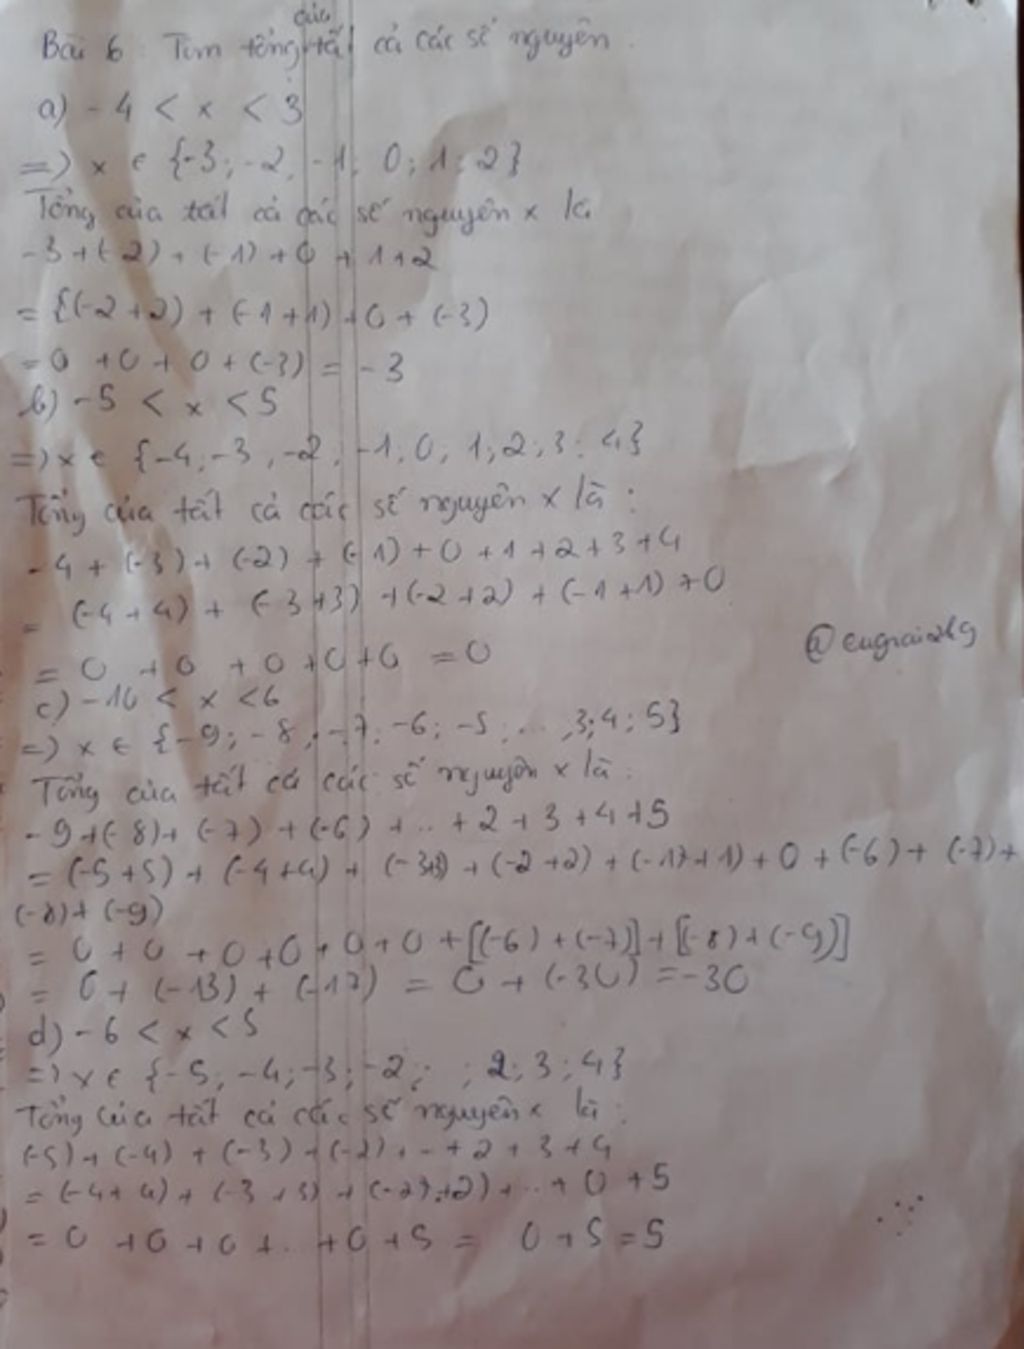 của
Bài 6 : Tìm tổng tất cả các số nguyên .
a) - 4 < x < 3
=> x ∈ {-3 ; -2 ; -1 ; 0 ; 1 ; 2}
Tổng của tất cả các số nguyên x là
-3 + (-2) + (-1) + 0 + 1 + 2
= {(-2 + 2) + (-1 + 1) + 0 + (-3)
= 0 + 0 + 0 + (-3) = -3
b) -5 < x < 5
=> x ∈ {-4 ; -3 , -2 ; -1 ; 0 ; 1 ; 2 ; 3 ; 4}
Tổng của tất cả các số nguyên x là :
-4 + (-3) + (-2) + (-1) + 0 + 1 + 2 + 3 + 4
= (-4 + 4) + (-3 + 3) + (-2 + 2) + (-1 + 1) + 0
= 0 + 0 + 0 + 0 + 0 = 0
c) -10 < x < 6
=> x ∈ {-9 ; -8 ; -7 ; -6 ; -5 ; ... , 3 ; 4 ; 5}
Tổng của tất cả các số nguyên x là :
-9 + (-8) + (-7) + (-6) + .. + 2 + 3 + 4 + 5
= (-5 + 5) + (-4 + 4) + (-3+3) + (-2 + 2) + (-1) + 1) + 0 + (-6) + (-7) +
(-8) + (-9)
= 0 + 0 + 0 + 0 + 0 + 0 + [(-6) + (-7)] + [(-8) + (-9)]
= 0 + (-13) + (-17) = 0 + (-30) = -30
d) -6 < x < 5
=> x ∈ {-5 ; -4 ; -3 ; -2 ; ; 2 ; 3 ; 4}
Tổng của tất cả các số nguyên x là :
(-5) + (-4) + (-3) + (-2) + .. + 2 + 3 + 4
= (-4 + 4) + (-3 + 3) + (-2) + 2) + .. + 0 + 5
= 0 + 0 + 0 + .. + 0 + 5 = 0 + 5 = 5